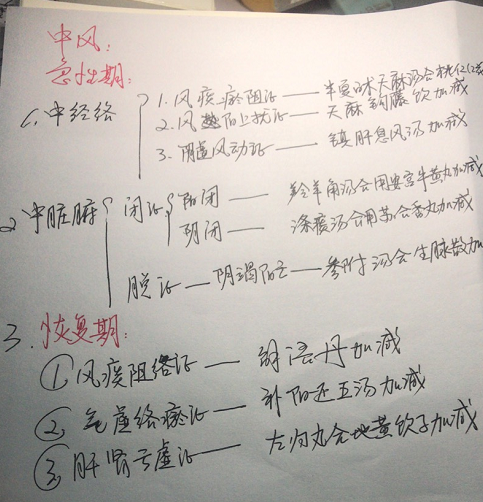 中风:
急性期:
1、中经络
1. 风痰瘀阻证 —— 半夏白术天麻汤合桃仁
2. 风阳上扰证 —— 天麻钩藤饮加减
3. 阴虚风动证 —— 镇肝息风汤加减
2 中脏腑 闭证 阳闭 —— 羚羊角汤合用安宫牛黄丸加减
阴闭 —— 涤痰汤合用苏合香丸加减
脱证 —— 阴竭阳亡 —— 参附汤合生脉散加
3. 恢复期:
① 风痰阻络证 —— 解语丹加减
② 气虚络瘀证 —— 补阳还五汤加减
③ 肝肾亏虚证 —— 左归丸合地黄饮子加减